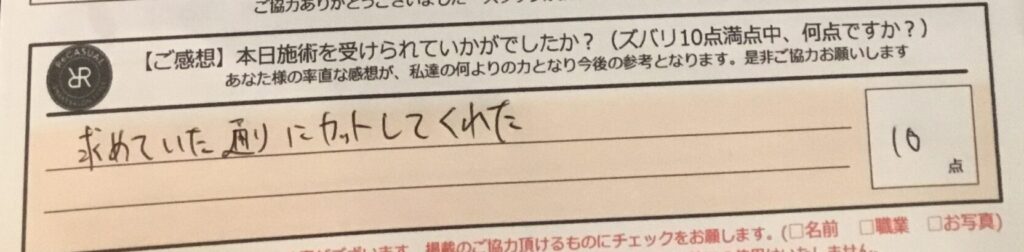 ご協力ありがとうございました
【ご感想】本日施術を受けられていかがでしたか？（ズバリ10点満点中、何点ですか？）
あなた様の率直な感想が、私達の何よりの力となり今後の参考となります。是非ご協力お願いします
求めていた通りにカットしてくれた
10
点
掲載のご協力頂けるものにチェックをお願いします。(□名前 □職業 □お写真)